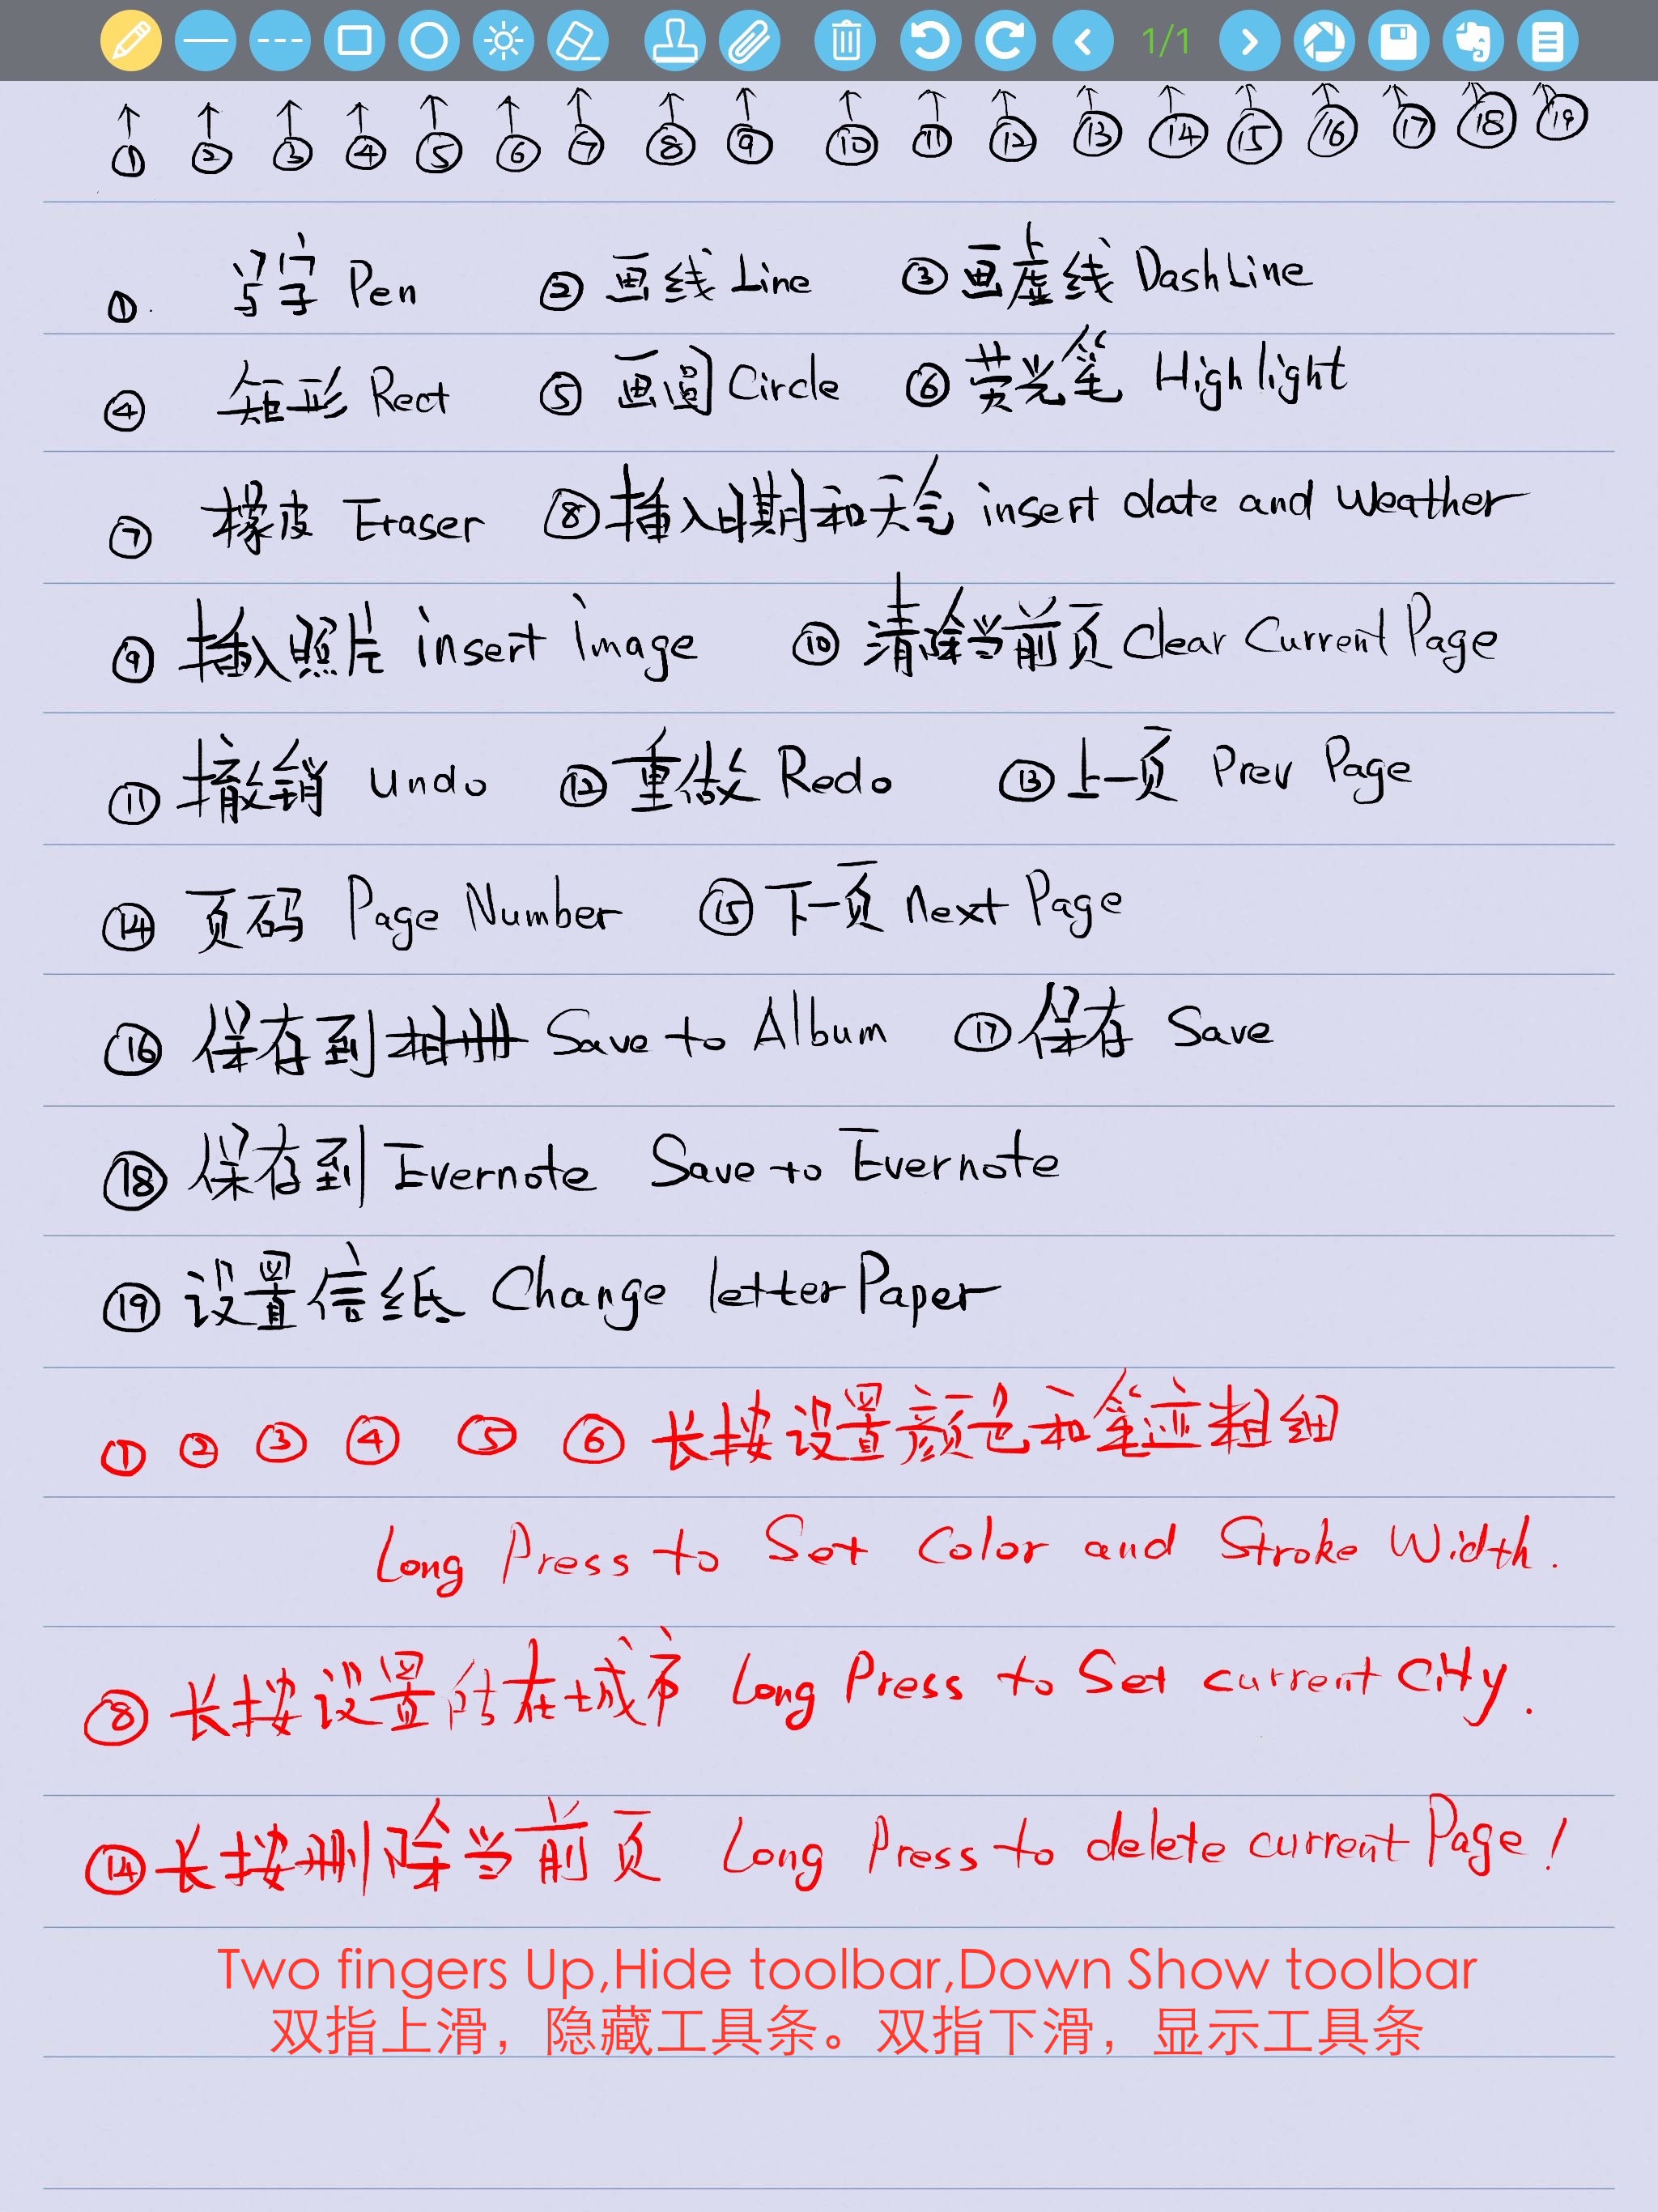 1/1
① ② ③ ④ ⑤ ⑥ ⑦ ⑧ ⑨ ⑩ ⑪ ⑫ ⑬ ⑭ ⑮ ⑯ ⑰ ⑱ ⑲
①. 写字 Pen ② 画线 Line ③ 画虚线 DashLine
④ 矩形 Rect ⑤ 画圆 Circle ⑥ 荧光笔 Highlight
⑦ 橡皮 Eraser ⑧ 插入日期和天气 insert date and Weather
⑨ 插入照片 insert image ⑩ 清除当前页 Clear Current Page
⑪ 撤销 undo ⑫ 重做 Redo ⑬ 上一页 Prev Page
⑭ 页码 Page Number ⑮ 下一页 Next Page
⑯ 保存到相册 Save to Album ⑰ 保存 Save
⑱ 保存到 Evernote Save to Evernote
⑲ 设置信纸 Change letterPaper
① ② ③ ④ ⑤ ⑥ 长按设置颜色和笔迹粗细
Long Press to Set Color and Stroke Width.
⑧ 长按设置所在城市 Long Press to Set current City.
⑭ 长按删除当前页 Long Press to delete current Page!
Two fingers Up,Hide toolbar,Down Show toolbar
双指上滑，隐藏工具条。双指下滑，显示工具条